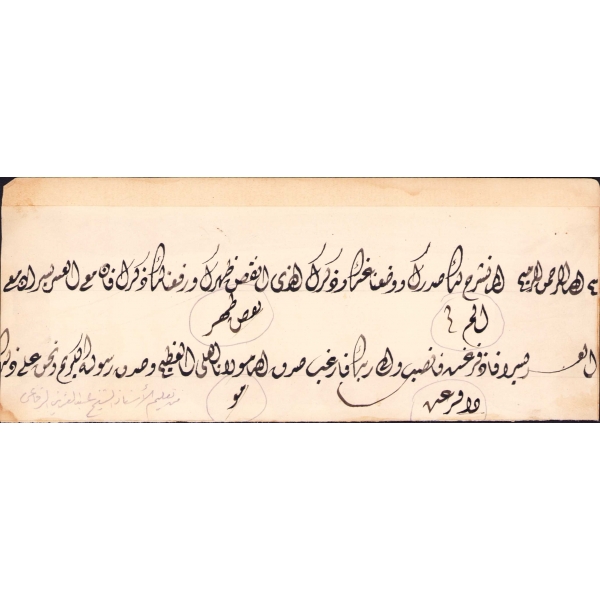 بسم الله الرحمن الرحيم الم نشرح لك صدرك ووضعنا عنك وزرك الذي انقض ظهرك ورفعنا لك ذكرك فان مع العسر يسرا ان مع
الم نقض ظهر
العسر يسرا فاذا فرغت فانصب والى ربك فارغب صدق الله مولانا العلي العظيم وصدق رسوله الكريم ونحن على ذلك
من تعليم الأستاذ الشيخ عبد العزيز الرفاعي